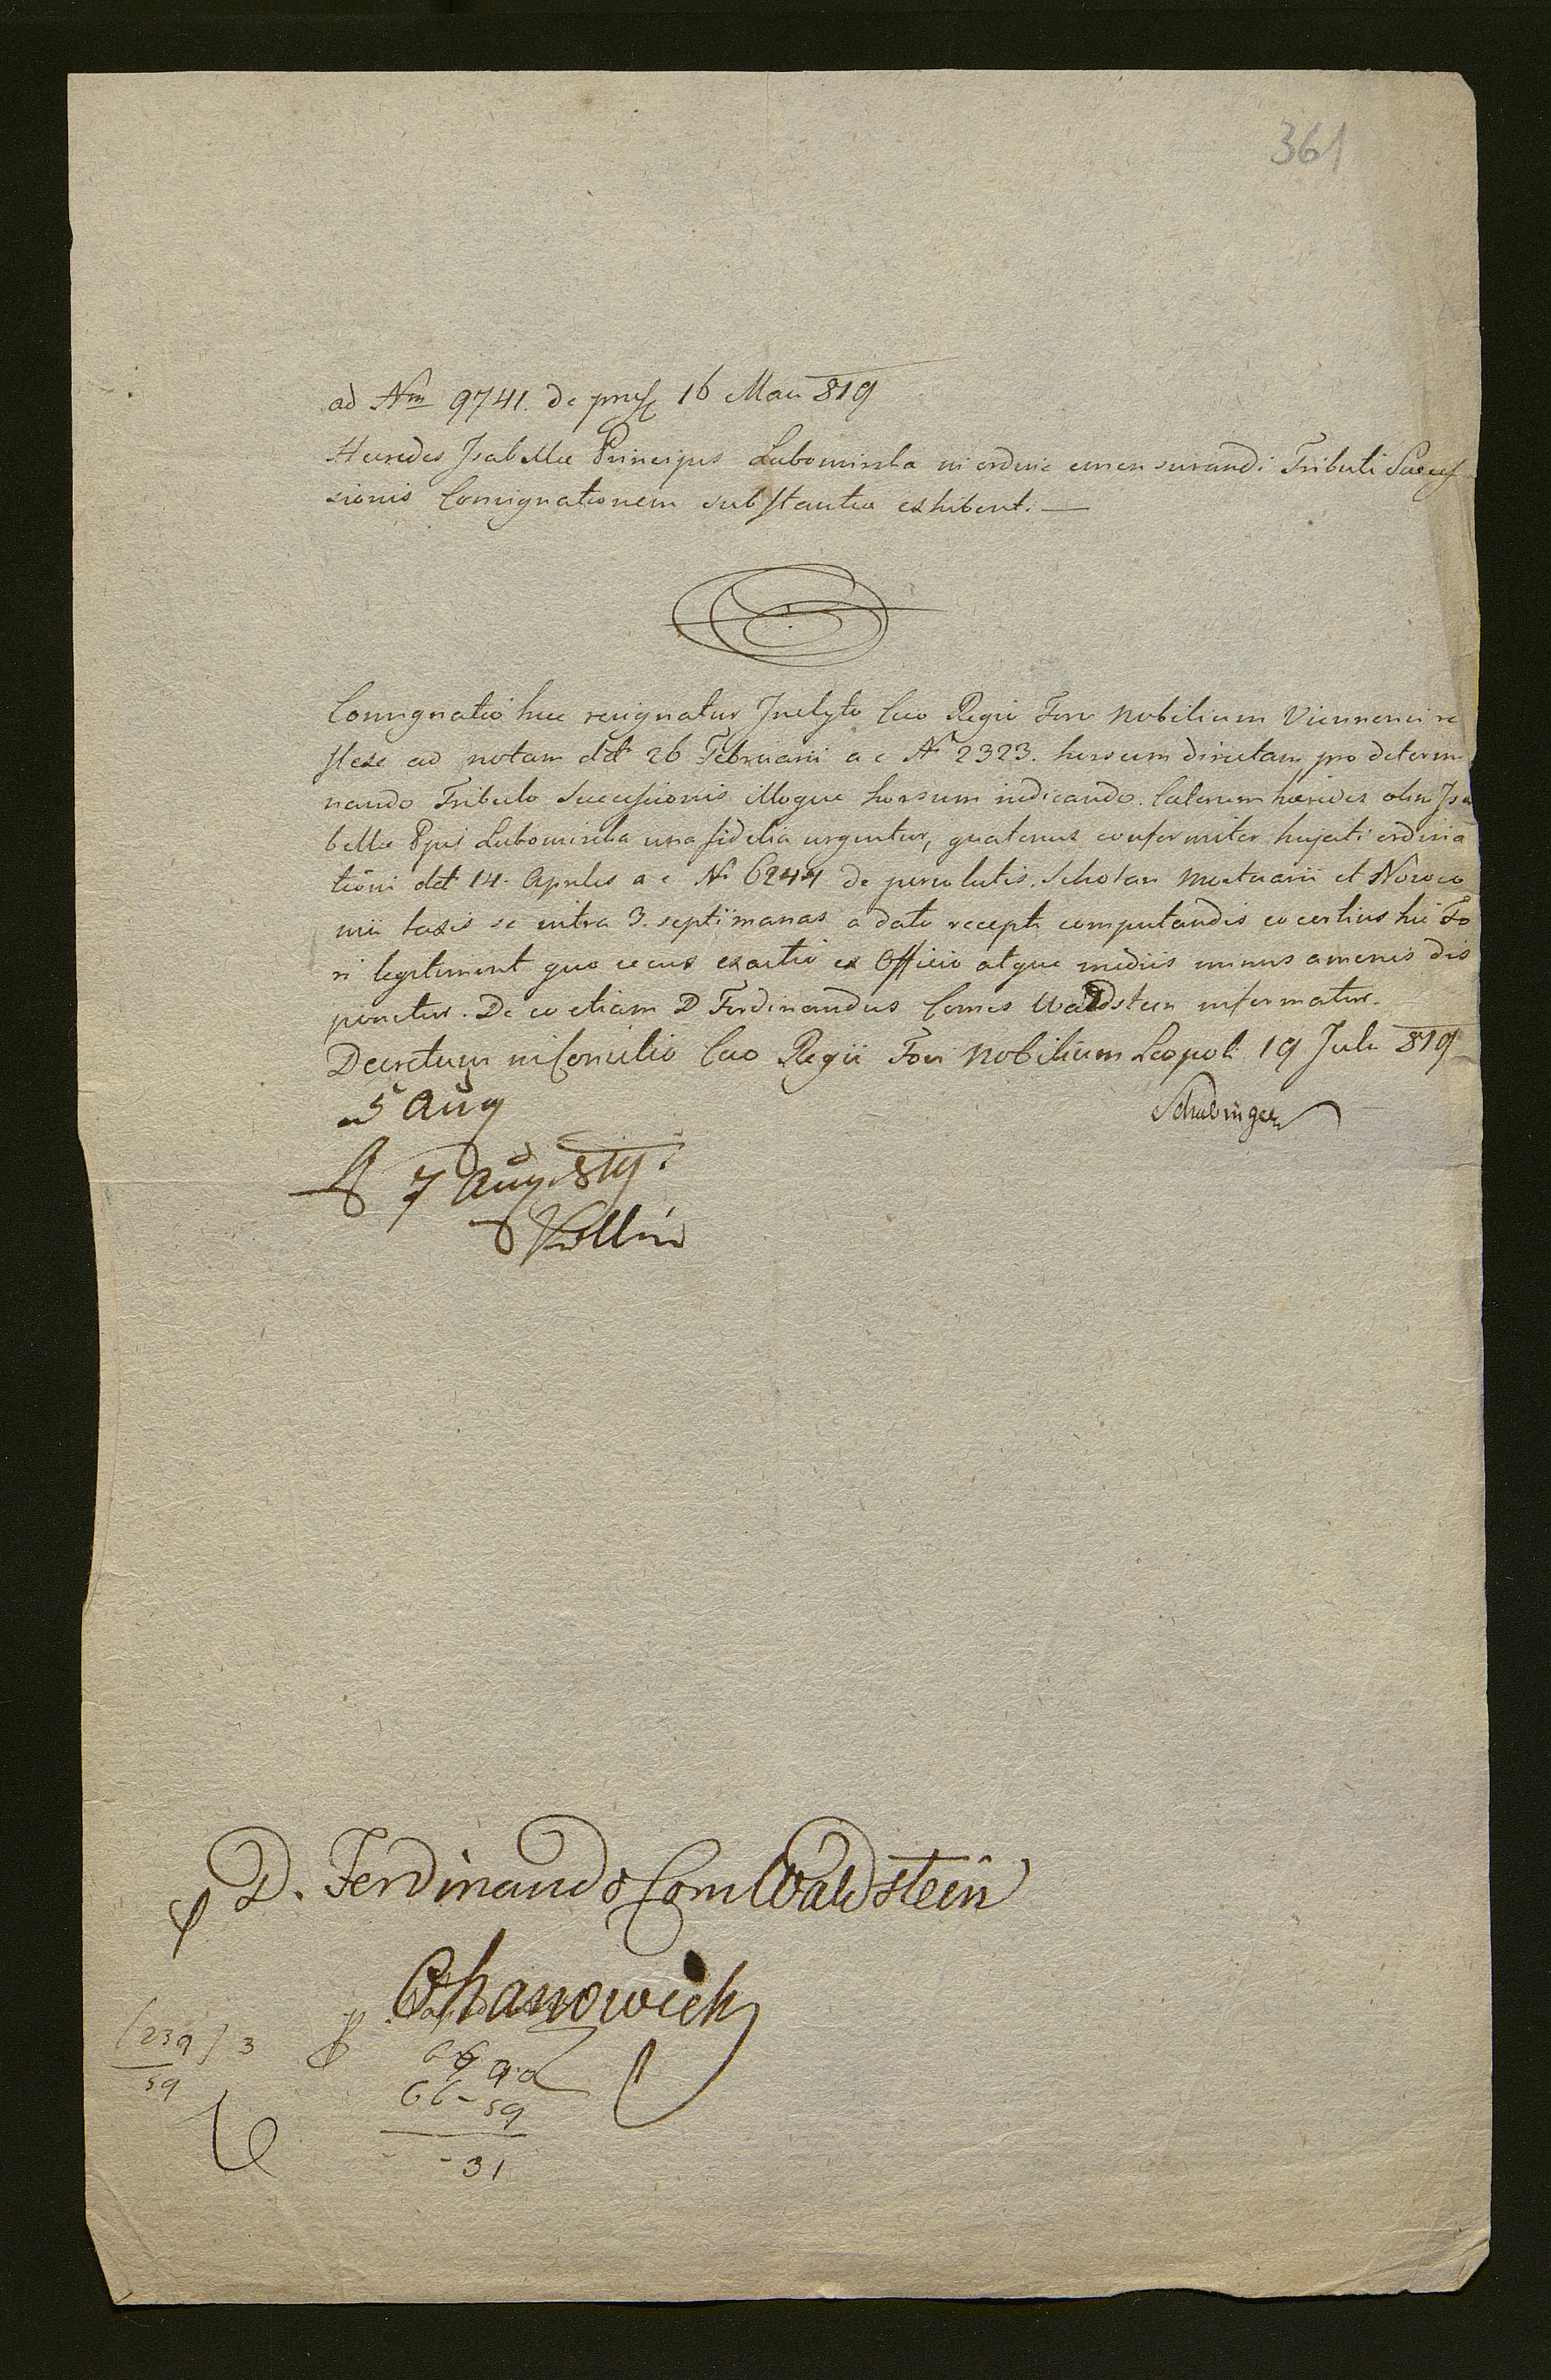 361
ad Nm 9741. de præs 16 Maii 819
Hæredes Isabellæ Principis Lubomirska in ordine emensurandi Tributi Succes
sionis Consignationem substantiæ exhibent. —
Consignatio hæc resignatur Inclyto Cæo Regio Foro Nobilium Viennensi re
flexe ad notam ddt 26 Februarii a c N 2323. horsum directam pro determi
nando Tributo Successionis illoque horsum indicando. Cæterum hæredes olim Isa
bellæ Ppis Lubomirska una fidelia urgentur, quatenus conformiter hujati ordina
tioni ddt 14. Aprilis a c N 6244 de persolutis Scholar Mortuarii et Nosoco
mii taxis se intra 3. septimanas a dato recepti computandis eo certius hic Fo
ri legitiment quo secus exactio ex Officio atque mediis minus amenis dis
ponetur. De eo etiam D Ferdinandus Comes Waldstein informatur.
Decretum in Consilio Cæo Regii Fori Nobilium Leopoli 19 Julii 819
5 Aug
7 Aug 819.
D. Ferdinando Com Waldstein
(239) 3
59
66 90
66 - 59
- 31